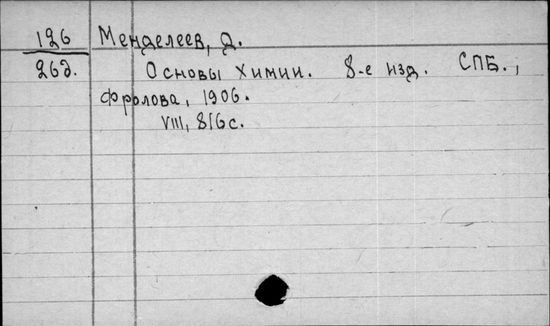 126 Менделеев, Д.
26д. Основы химии. 8-е изд. СПБ.,
Фролова, 1906.
VIII, 816с.